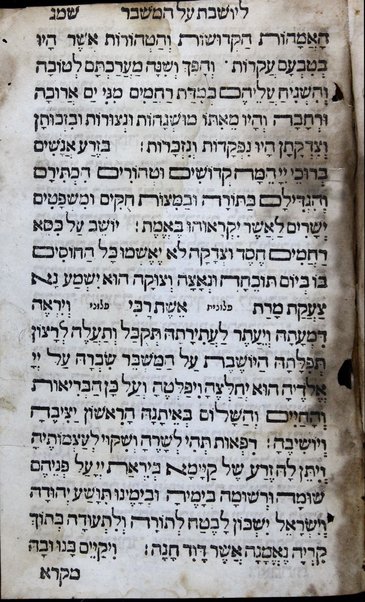 ליושבת על המשבר שמג
הָאִמָּהוֹת הַקְּדוֹשׁוֹת וְהַטְּהוֹרוֹת אֲשֶׁר הָיוּ
בְּטִבְעָם עֲקָרוֹת · וְהָפַךְ וְשִׁנָּה מַעֲרַכְתָּם לְטוֹבָה
וְהִשְׁגִּיחַ עֲלֵיהֶם בְּמִדַּת רַחֲמִים מִנִּי יָם אֲרוּכָה
וּרְחָבָה · וְהָיוּ מֵאִתּוֹ מוּשְׁגָּחוֹת וּנְצוּרוֹת וּבִזְכוּתָן
וְצִדְקָתָן הָיוּ נִפְקָדוֹת וְנִזְכָּרוֹת : בְּזֶרַע אֲנָשִׁים
בְּרוּכֵי יְיָ הֵמָּה קְדוֹשִׁים וּטְהוֹרִים הִכְתִּירָם
וְהִגְדִּילָם בַּתּוֹרָה וּבַמִּצְוֹת חֻקִּים וּמִשְׁפָּטִים
יְשָׁרִים לַאֲשֶׁר יִקְרָאוּהוּ בֶּאֱמֶת : יוֹשֵׁב עַל כִּסֵּא
רַחֲמִים חֶסֶד וּצְדָקָה לֹא יֶאְשְׁמוּ כָּל הַחוֹסִים
בּוֹ בְּיוֹם תּוֹכֵחָה וּנְאָצָה וְצוּקָה הוּא יִשְׁמַע נָא
צַעֲקַת מָרַת פלונית אֵשֶׁת רַבִּי פלוני וְיִרְאֶה
דִּמְעָתָהּ וְיֵעָתֵר לַעֲתִירָתָהּ תְּקַבֵּל וְתַעֲלֶה לְרָצוֹן
תְּפִלָּתָהּ הַיּוֹשֶׁבֶת עַל הַמַּשְׁבֵּר שִׂבְרָהּ עַל יְיָ
אֱלֹהֶיהָ הוּא יְחַלְּצֶהָ וִיפַלְּטֶהָ וְעַל כֵּן הַבְּרִיאוּת
וְהַחַיִּים וְהַשָּׁלוֹם בְּאֵיתָנָהּ הָרִאשׁוֹן יַצִּיבֶהָ
וְיוֹשִׁיבֶהָ : רִפְאוּת תְּהִי לְשָׁרָהּ וְשִׁקּוּי לְעַצְמוֹתֶיהָ
וְיִתֵּן לָהּ זֶרַע שֶׁל קַיָּימָא בְּיִרְאַת יְיָ עַל פְּנֵיהֶם
שׂוּמָה וּרְשׁוּמָה בְּיָמֶיהָ וּבְיָמֵינוּ תִּוָּשַׁע יְהוּדָה
וְיִשְׂרָאֵל יִשְׁכּוֹן לָבֶטַח לְתוֹרָה וְלִתְעוּדָה בְּתוֹךְ
קִרְיָה נֶאֱמָנָה אֲשֶׁר דָּוִד חָנָה : וִיקֻיַּים בָּנוּ וּבָהּ
מִקְרָא